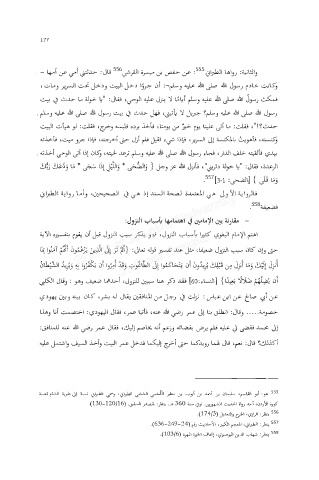 ١٢٢
والثانية: رواها الطبراني555: عن حفص بن ميسرة القرشي556 قال: حدثتني أمي عن أمها –
وكانت خادم رسول الله صلى الله عليه وسلم-: أن جروًا دخل البيت ودخل تحت السرير ومات،
فمكث رسول الله صلى الله عليه وسلم أيامًا لا ينزل عليه الوحي، فقال: "يا خولة ما حدث في بيت
رسول الله صلى الله عليه وسلم؟ جبريل لا يأتيني، فهل حدث في بيت رسول الله صلى الله عليه وسلم
حدث؟"، فقلت: ما أتى علينا يوم خير من يومنا، فأخذ برده فلبسه وخرج، فقلت: لو هيأت البيت
وكنسته، فأهويت بالمكنسة إلى السرير، فإذا شيء ثقيل فلم أزل حتى أخرجته، فإذا جرو ميت، فأخذته
بيدي فألقيته خلف الدار، فجاء رسول الله صلى الله عليه وسلم ترعد لحيته، وكان إذا أتى الوحي أخذته
الرعدة، فقال: "يا خولة دثريني"، فأنزل الله عز وجل { وَالضُّحَى * وَاللَّيْلِ إِذَا سَجَى * مَا وَدَّعَكَ رَبُّكَ
وَمَا قَلَى } [الضحى: 1-3]557.
فالرواية الأولى هي المعتمدة لصحة السند إذ هي في الصحيحين، وأما رواية الطبراني
فضعيفة558.
- مقارنة بين الإمامين في اهتمامها بأسباب النزول:
اهتم الإمام البغوي كثيرا بأسباب النزول، فهو يذكر سبب النزول قبل أن يقوم بتفسيره الآية
حتى وإن كان سبب النزول ضعيفا، مثل عند تفسير قوله تعالى: {أَلَمْ تَرَ إِلَى الَّذِينَ يَزْعُمُونَ أَنَّهُمْ آمَنُوا بِمَا
أُنزِلَ إِلَيْكَ وَمَا أُنزِلَ مِن قَبْلِكَ يُرِيدُونَ أَن يَتَحَاكَمُوا إِلَى الطَّاغُوتِ وَقَدْ أُمِرُوا أَن يَكْفُرُوا بِهِ وَيُرِيدُ الشَّيْطَانُ
أَن يُضِلَّهُمْ ضَلَالًا بَعِيدًا} [النساء:60] فقد ذكر هنا سببين للنزول، أحدهما ضعيف وهو : وقال الكلبي
عن أبي صالح عن ابن عباس: نزلت في رجل من المنافقين يقال له بشر، كان بينه وبين يهودي
خصومة..... وقال: انطلق بنا إلى عمر رضي الله عنه، فأتيا عمر، فقال اليهودي: اختصمت أنا وهذا
إلى محمد فقضى لي عليه فلم يرض بقضائه وزعم أنه يخاصم إليك، فقال عمر رضي الله عنه للمنافق:
أكذلك؟ قال: نعم، قال لهما رويدكما حتى أخرج إليكما فدخل عمر البيت وأخذ السيف واشتمل عليه
555 هو: أبو القاسم، سليمان بن أحمد بن أيوب بن مطير اللخمي الشامي الطبراني،
توفي سنة 360 هـ. ينظر: المصدر السابق، (16/120-130).
556 ينظر: الرازي، الجرح والتعديل (174/3).
557 ينظر: الطبراني، المعجم الكبير، الأحاديث رقم (24-249-636).
558 ينظر: شهاب الدين البوصيري، إتحاف الخيرة المهرة (103/6).